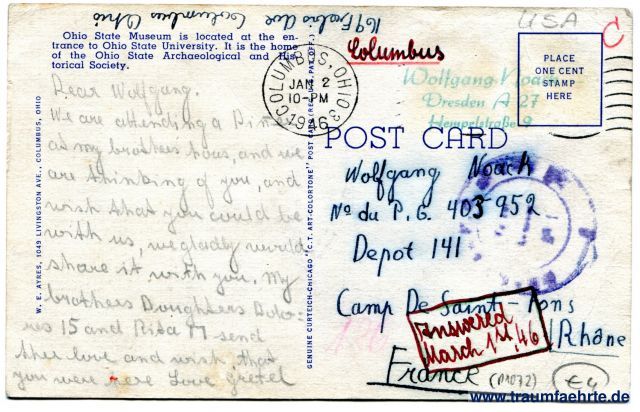 169 Ave Columbus Ohio
USA
C
Ohio State Museum is located at the en-
trance to Ohio State University. It is the home
of the Ohio State Archaeological and His-
torical Society.
Columbus
COLUMBUS, OHIO 3
JAN 2
10-PM
1946
PLACE
ONE CENT
STAMP
HERE
Wolfgang Noack
Dresden A 27
Hempelstraße 9
Dear Wolfgang.
We are attending a Dinner
as my brothers hous, and we
are thinking of you, and
wish that you could be
with us, we gladly would
share it with you. My
brothers Doughters Dolo-
res 15 and Rita 17 send
ther love and wish that
you were here Love Gretel
W. E. AYRES, 1049 LIVINGSTON AVE., COLUMBUS, OHIO
GENUINE CURTEICH-CHICAGO "C.T. ART-COLORTONE" POST CARD (REG. U.S. PAT. OFF.)
POST CARD
Wolfgang Noack
No du P.G. 403 952
Depot 141
Camp De Saint-Fons
/Rhône
France
Answered
March 1st 46
(M072)
€4
www.traumfaehrte.de